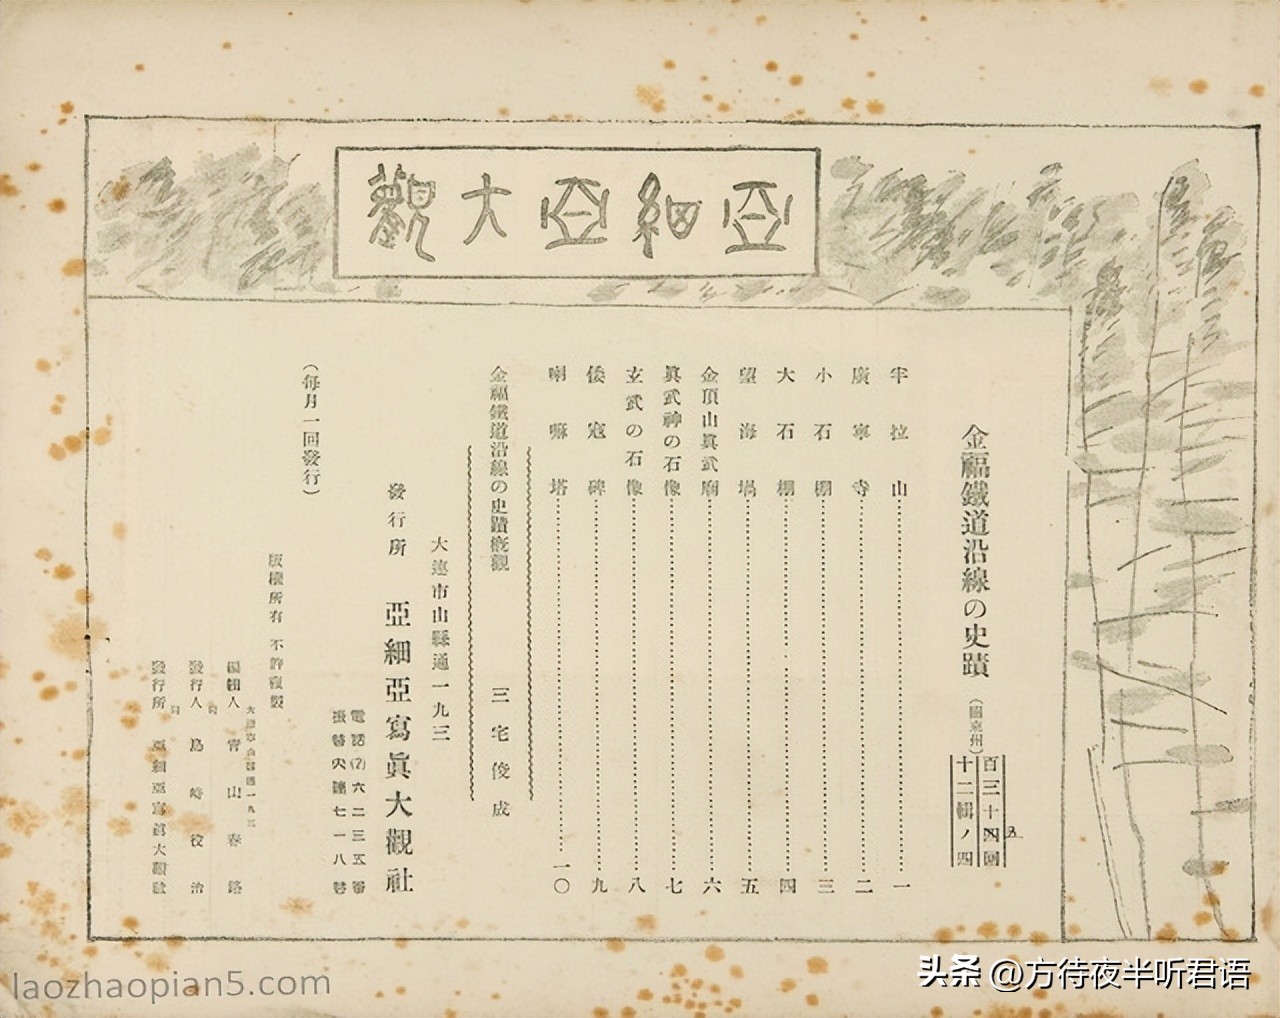 亞細亞大觀
金福鐵道沿線の史蹟
(關東州)
百三十四回
五
十二輯ノ四
牢拉山……一
廣寧寺……二
小石棚……三
大石棚……四
望海堝……五
金頂山眞武廟……六
眞武神の石像……七
玄武の石像……八
倭寇碑……九
喇嘛塔……一〇
金福鐵道沿線の史蹟概觀 三宅俊成
大連市山縣通一九三
發行所 亞細亞寫眞大觀社
電話(7)六二三五番
振替大連七一八番
(每月一回發行)
版權所有 不許複製
大連市山縣通一九三
編輯人 青山春路
發行人 島崎役治
發行所 亞細亞寫眞大觀社
laozhaopian5.com
头条 @方待夜半听君语